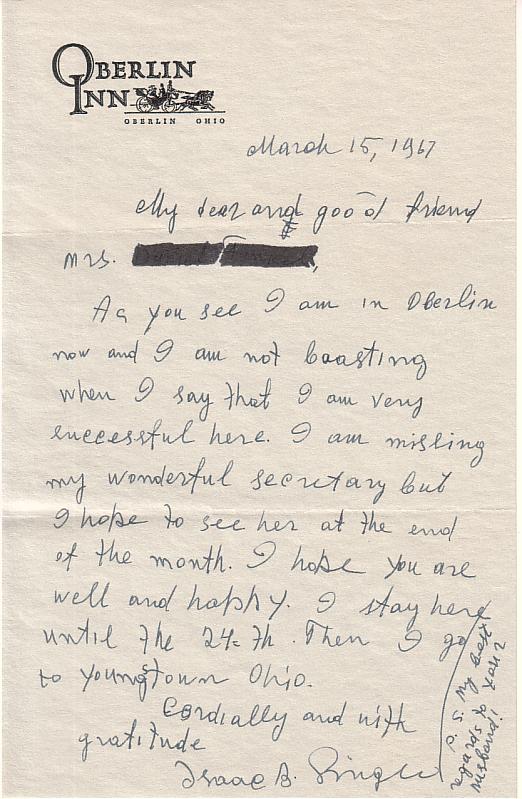 OBERLIN
INN
OBERLIN OHIO
March 15, 1967
My dear and good friend
Mrs.
As you see I am in Oberlin
now and I am not boasting
when I say that I am very
successful here. I am missing
my wonderful secretary but
I hope to see her at the end
of the month. I hope you are
well and happy. I stay here
until the 24-th. Then I go
to Youngtown Ohio.
Cordially and with
gratitude
Isaac B. Singer
P.S. My best
regards to your
husband!